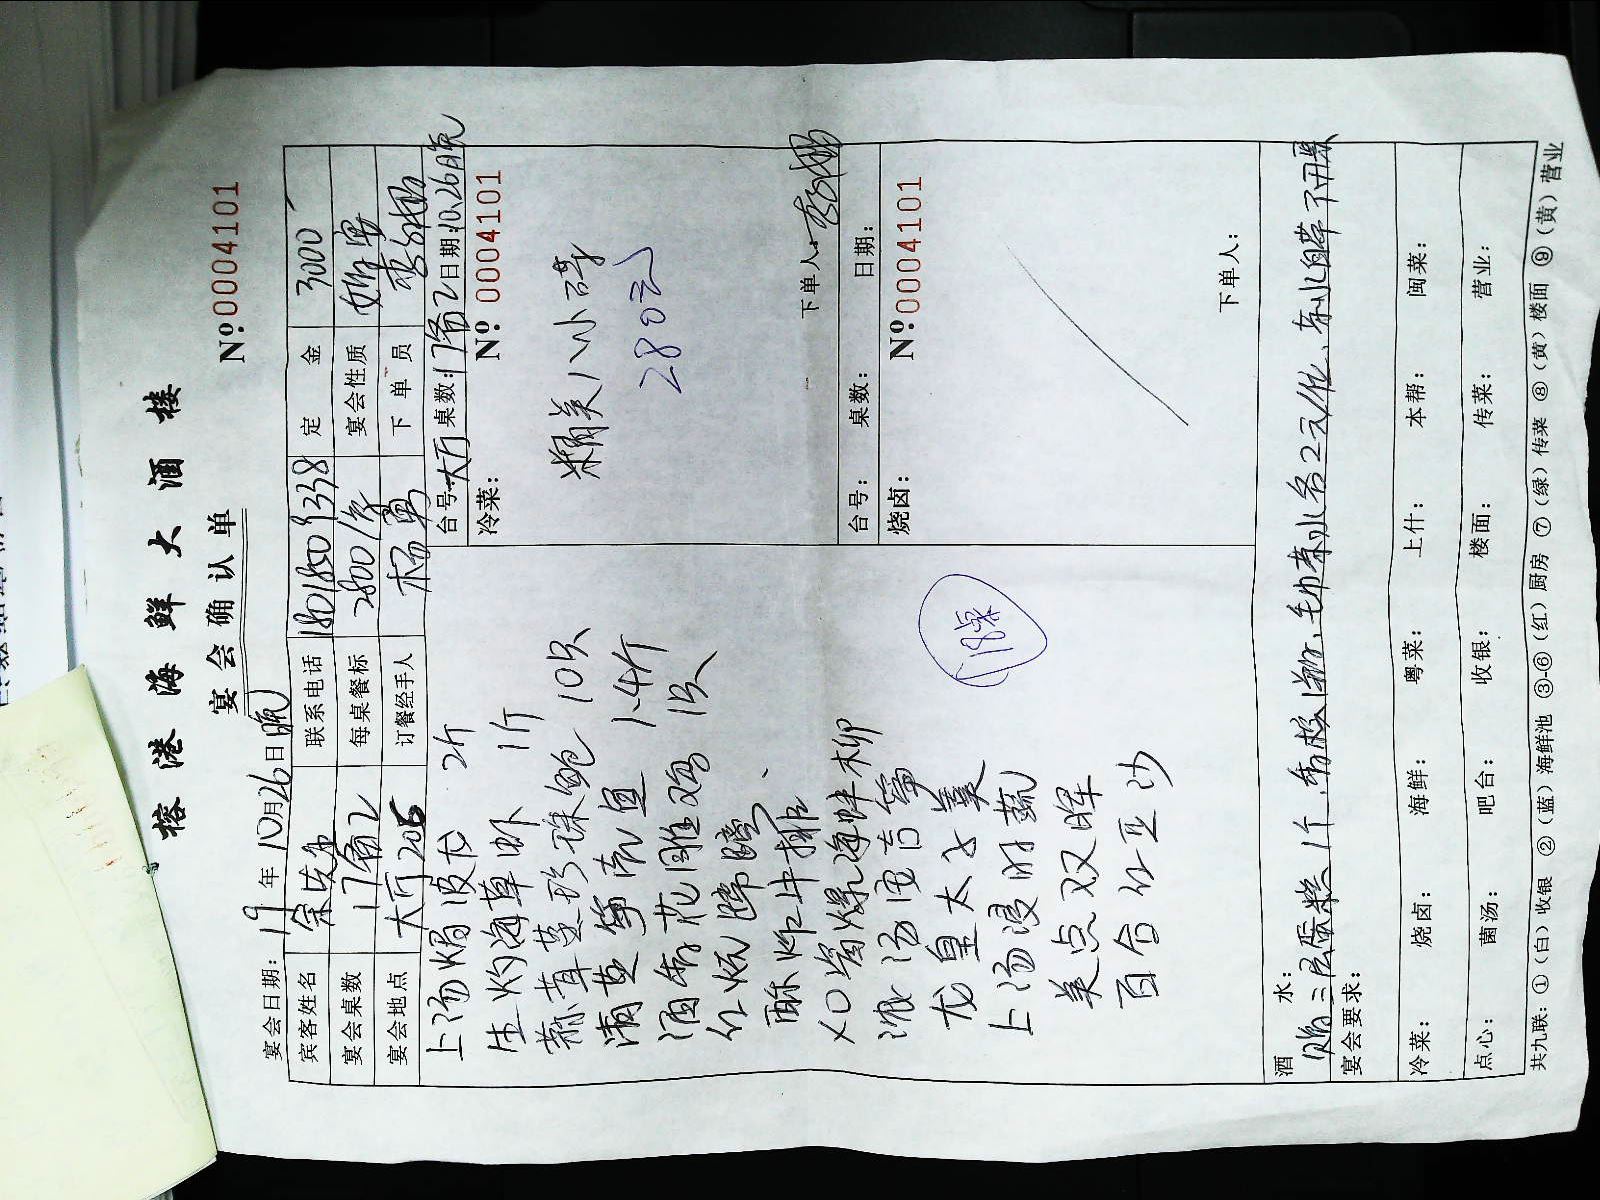 榕港海鲜大酒楼
宴会确认单
№:0004101
宴会日期:19年10月26日晚
宾客姓名 联系电话 18018509338 定金 3000
宴会桌数 17备2 每桌餐标 2800/桌 宴会性质
宴会地点 大厅206 订餐经手人 杨勇 下单员
上汤焗波龙 2斤
生灼海草虾 1斤
蒜茸蒸珍珠鲍 10只
清蒸笋壳鱼 1.4斤
酒香花雕鸡 1只
红炖蹄膀
酥炸牛排
XO酱爆海蚌柳
浓汤
龙皇太子羹
上汤浸时蔬
美点双晖
百合红豆沙
17桌
台号:大厅 桌数:17备2 日期:10.26晚
冷菜: №:0004101
精美八小碟
280元
下单人:
台号: 桌数: 日期:
烧卤: №:0004101
下单人:
酒水:
宴会要求:
三层蛋糕1个
毛巾茶水各2元/位
冷菜: 烧卤: 海鲜: 粤菜: 上什: 本帮: 闽菜:
点心: 菌汤: 吧台: 收银: 楼面: 传菜: 营业:
共九联:①(白)收银 ②(蓝)海鲜池 ③-⑥(红)厨房 ⑦(绿)传菜 ⑧(黄)楼面 ⑨(黄)营业